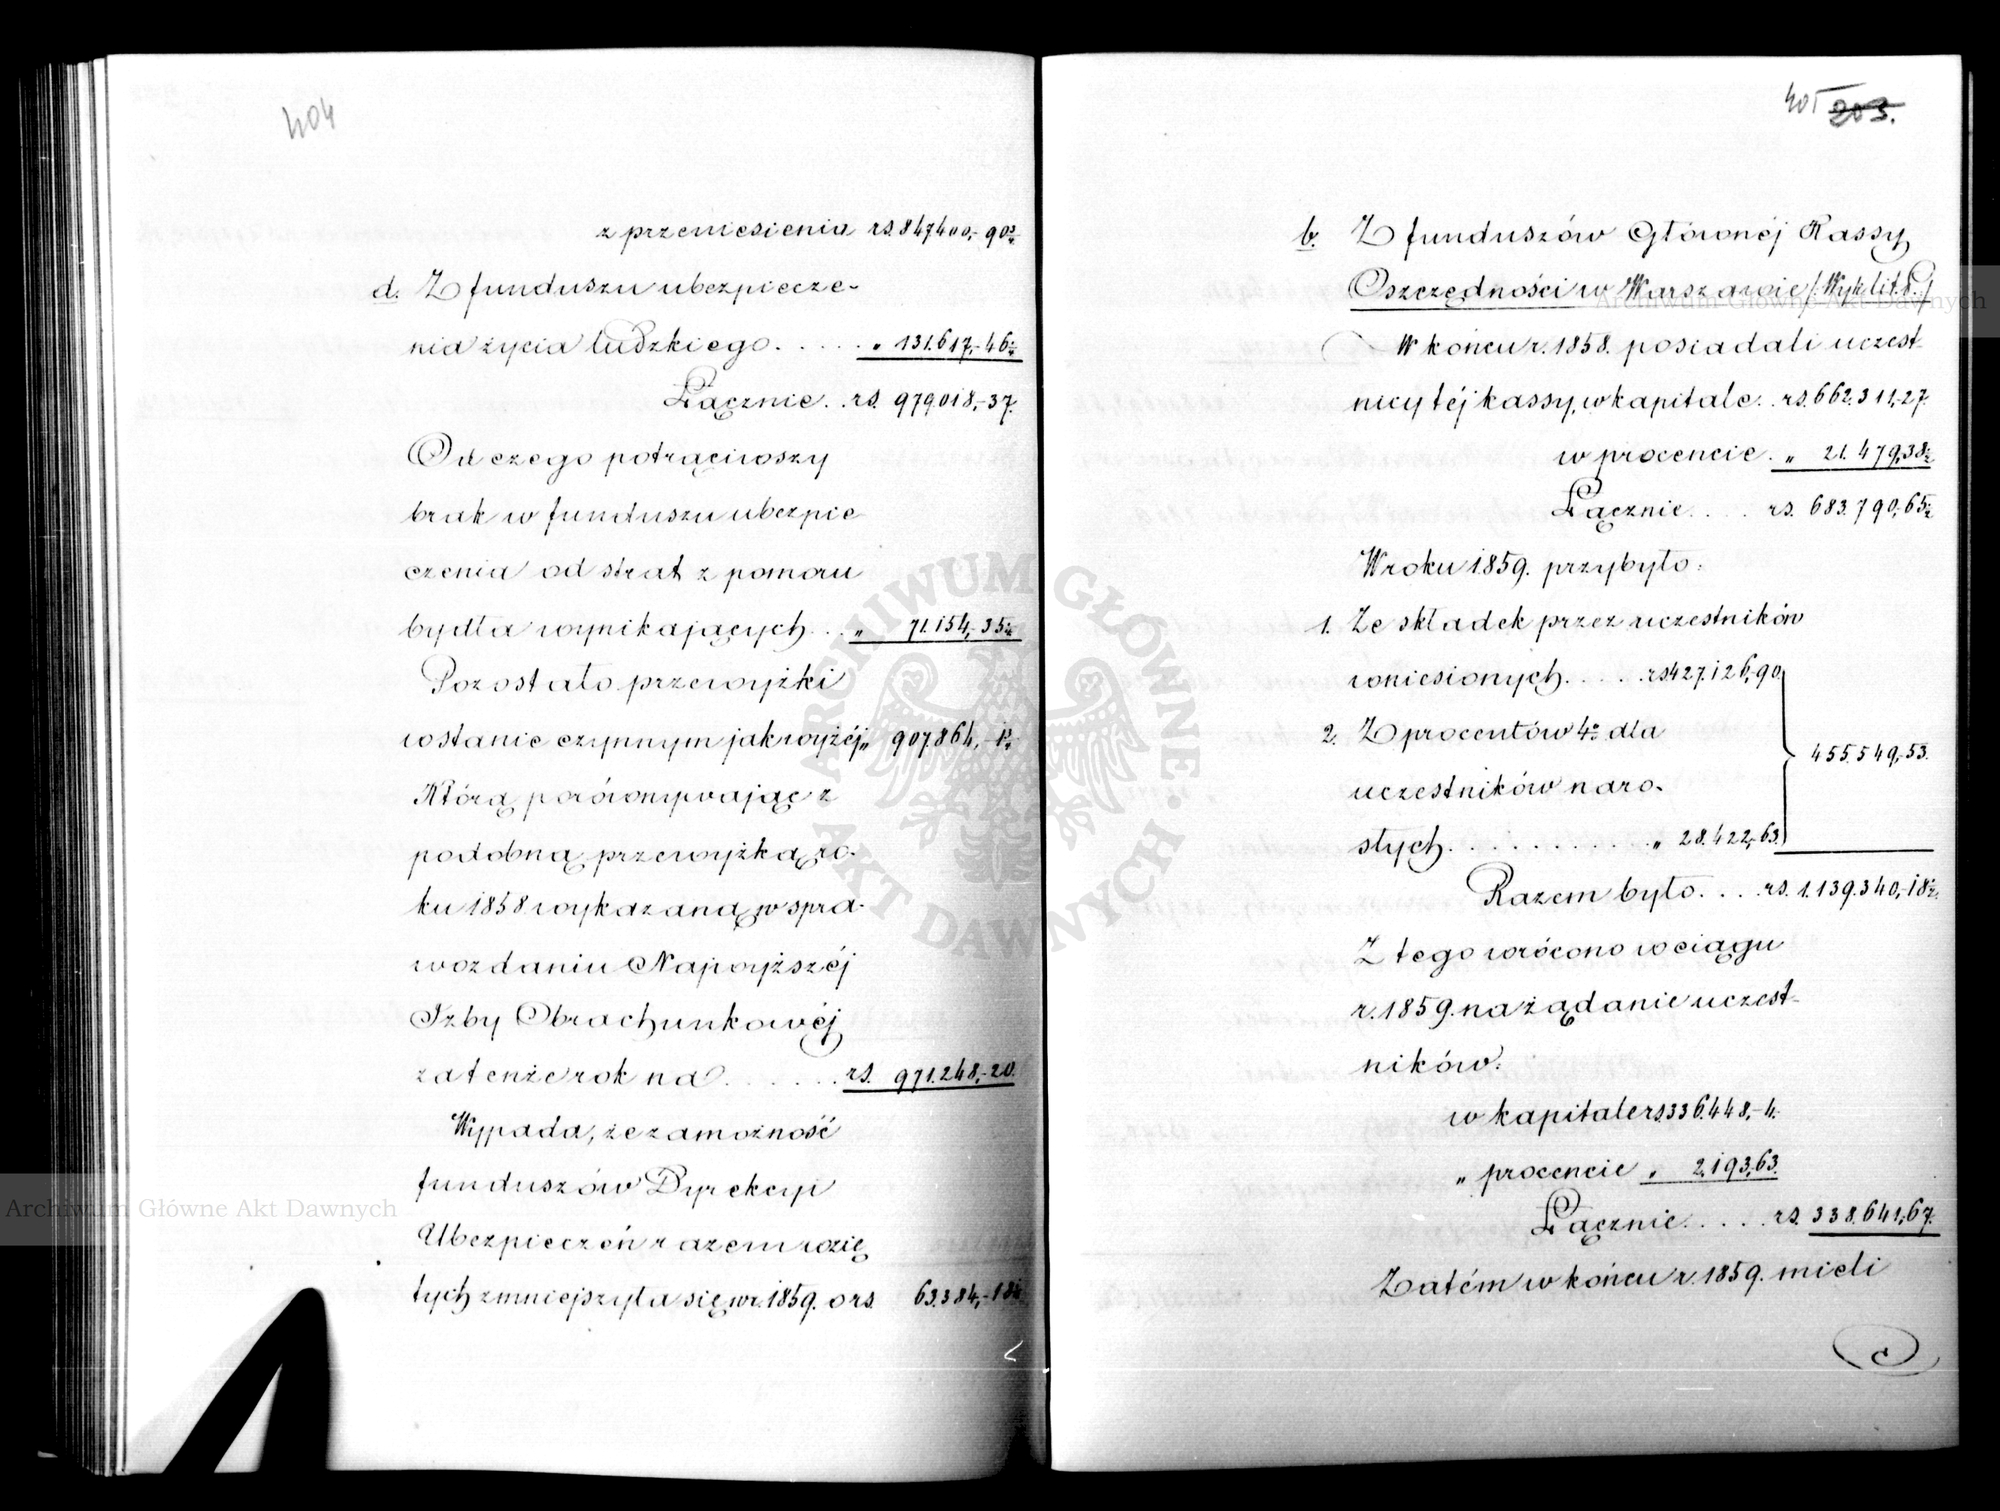 404
z przeniesienia rs. 847400,-90½
d. Z funduszu ubezpiecze-
nia życia ludzkiego. . . . . „ 131.617,-46½
Łącznie. . rs. 979.018,-37.
Od czego potrąciwszy
brak w funduszu ubezpie
czenia od strat z pomoru
bydła wynikających. . . „ 71.154,-35½
Pozostało przewyżki
w stanie czynnym jak wyżéj „ 907.864,-1½
Którą porównywając z
podobną przewyżką ro-
ku 1858 wykazaną w spra-
wozdaniu Najwyższéj
Izby Obrachunkowéj
za tenże rok na . . . . . . . rs. 971.248,-20.
Wypada, że zamożność
funduszów Dyrekcyi
Ubezpieczeń razem wzię
tych zmniejszyła się w r. 1859. o rs. 63.384,-18½
405 203.
b. Z funduszów Głównéj Kassy
Oszczędności w Warszawie /: Wyk. lit.
W końcu r. 1858. posiadali uczest-
nicy téj kassy, w kapitale. . rs. 662.311,-27.
w procencie. „ 21.479,38½
Łącznie. . . . rs. 683.790,65½
W roku 1859. przybyło:
1. Ze składek przez uczestników
wniesionych. . . . . rs. 427.126,-90
2. Z procentów 4% dla
455.549,-53.
uczestników naro-
słych. . . . . . . . . . . „ 28.422,-63.
Razem było. . . . rs. 1.139.340,-18½
Z tego wrócono w ciągu
r. 1859. na żądanie uczest-
ników:
w kapitale rs. 336.448,-4.
„ procencie „ 2.193,63.
Łącznie. . . . . rs. 338.641,67.
Zatém w końcu r. 1859. mieli
ARCHIWUM GŁÓWNE AKT DAWNYCH
Archiwum Główne Akt Dawnych
Archiwum Główne Akt Dawnych